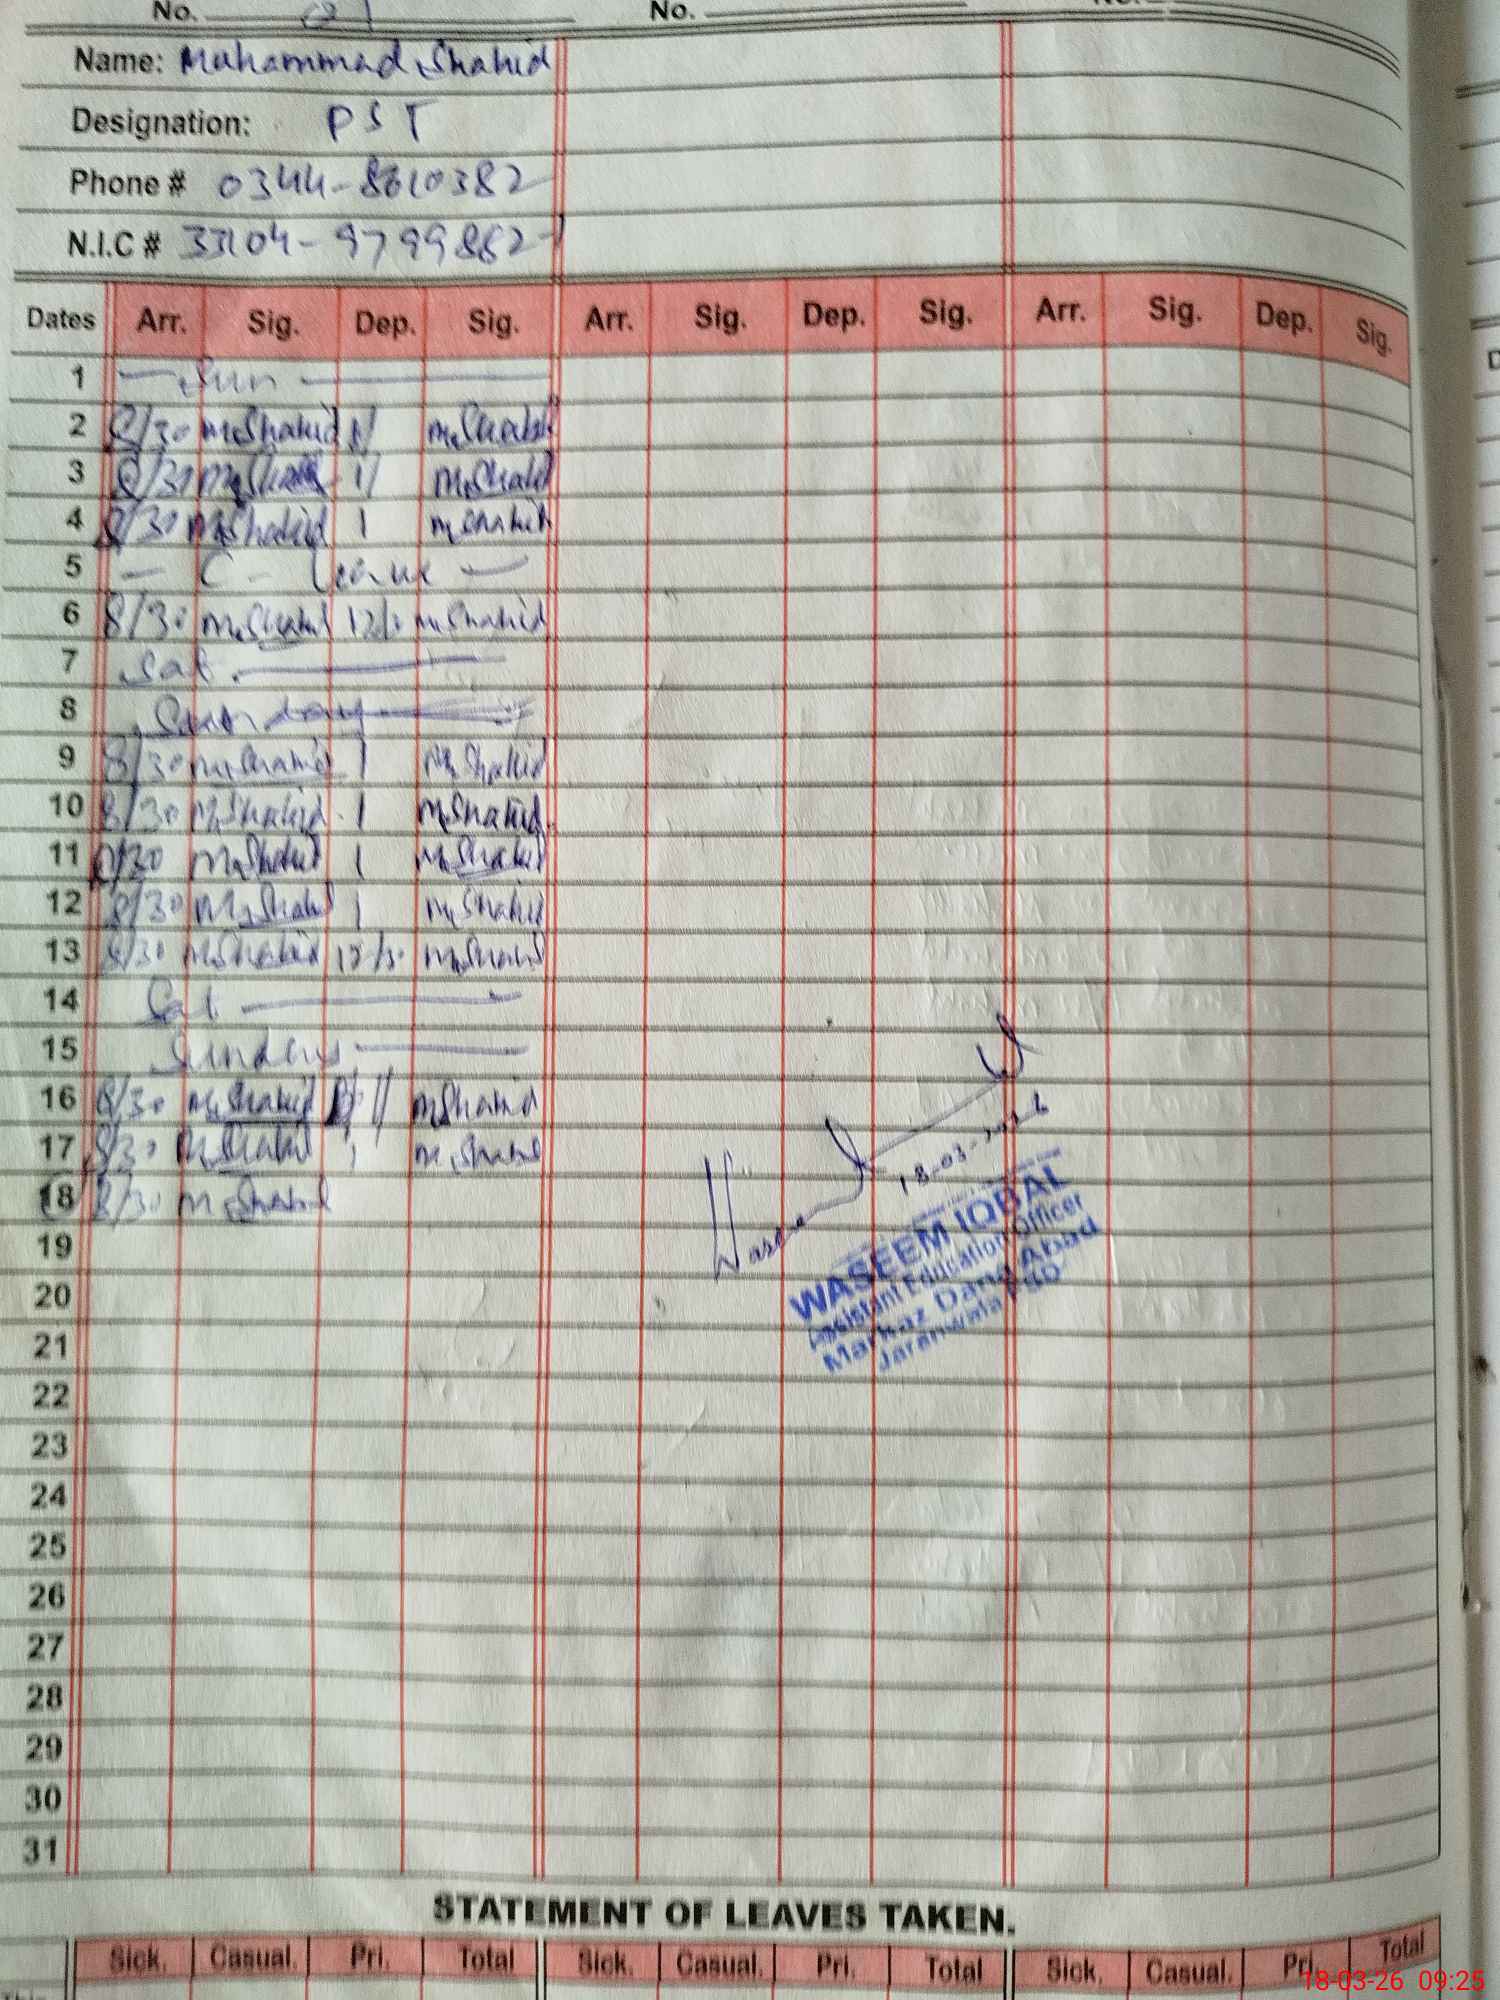 No. 01 No.
Name: Muhammad Shahid
Designation: PST
Phone # 0344-8610382
N.I.C # 33104-9799882-1
Dates Arr. Sig. Dep. Sig. Arr. Sig. Dep. Sig. Arr. Sig. Dep. Sig.
1 — Sun —
2 8/30 M.Shahid 1/ M.Shahid
3 8/30 M.Shahid 1/ M.Shahid
4 8/30 M.Shahid 1 M.Shahid
5 — C - Leave —
6 8/30 M.Shahid 12/30 M.Shahid
7 Sat. —
8 Sunday —
9 8/30 M.Shahid 1 M.Shahid
10 8/30 M.Shahid 1 M.Shahid
11 8/30 M.Shahid 1 M.Shahid
12 8/30 M.Shahid 1 M.Shahid
13 8/30 M.Shahid 12/30 M.Shahid
14 Sat —
15 Sunday —
16 8/30 M.Shahid 1/ M.Shahid
17 8/30 M.Shahid 1 M.Shahid
18 8/30 M.Shahid
18-03-2026
WASEEM IQBAL
Assistant Education Officer
Markaz Abad
Jaranwala FSD
19
20
21
22
23
24
25
26
27
28
29
30
31
STATEMENT OF LEAVES TAKEN.
Sick. Casual. Pri. Total Sick. Casual. Pri. Total Sick. Casual. Pri. Total
18-03-26 09:25